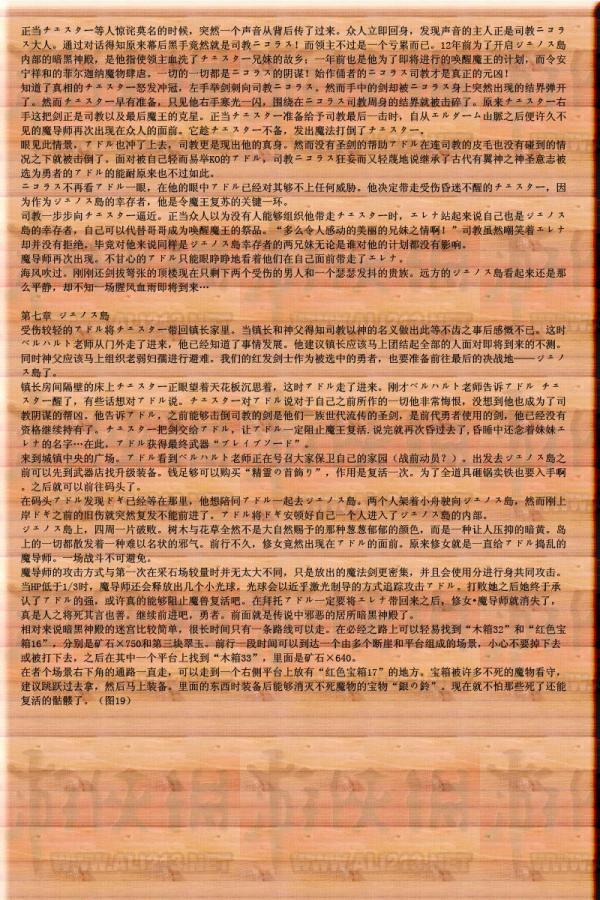 正当チエスター等人惊诧莫名的时候，突然一个声音从背后传了过来。众人立即回身，发现声音的主人正是司教ニコラ
ス大人。通过对话得知原来幕后黑手竟然就是司教ニコラス！而领主不过是一个亏累而已。12年前为了开启ジェノス島
内部的暗黑神殿，是他指使领主血洗了チエスター兄妹的故乡；一年前也是他为了即将进行的唤醒魔王的计划，而令安
宁祥和的菲尔迦纳魔物肆虐，一切的一切都是ニコラス的阴谋！始作俑者的ニコラス司教才是真正的元凶！
知道了真相的チエスター怒发冲冠，左手举剑刺向司教ニコラス。然而手中的剑却被ニコラス身上突然出现的结界弹开
了。然而チエスター早有准备，只见他右手寒光一闪，围绕在ニコラス司教周身的结界就被击碎了。原来チエスター右
手这把剑正是司教以及最后魔王的克星。正当チエスター准备给予司教最后一击时，自从エルダーム山脉之后便许久不
见的魔导师再次出现在众人的面前。它趁チエスター不备，发出魔法打倒了チエスター。
眼见此情景，アドル也冲了上去，司教更是现出他的真身。然而没有圣剑的帮助アドル在连司教的皮毛也没有碰到的情
况之下就被击倒了。面对被自己轻而易举KO的アドル，司教ニコラス狂妄而又轻蔑地说继承了古代有翼神之神圣意志被
选为勇者的アドル的能耐原来也不过如此。
ニコラス不再看アドル一眼，在他的眼中アドル已经对其够不上任何威胁。他决定带走受伤昏迷不醒的チエスター，因
为作为ジェノス島的幸存者，他是令魔王复苏的关键一环。
司教一步步向チエスター逼近。正当众人以为没有人能够组织他带走チエスター时，エレナ站起来说自己也是ジェノス
島的幸存者，自己可以代替哥哥成为唤醒魔王的祭品。“多么令人感动的美丽的兄妹之情啊！”司教虽然嘲笑着エレナ
却并没有拒绝。毕竟对他来说同样是ジェノス島幸存者的两兄妹无论是谁对他的计划都没有影响。
魔导师再次出现。不甘心的アドル只能眼睁睁地看着他们在自己面前带走了エレナ。
海风吹过。刚刚还剑拔弩张的顶楼现在只剩下两个受伤的男人和一个瑟瑟发抖的贵族。远方的ジェノス島看起来还是那
么平静，却不知一场腥风血雨即将到来…
第七章 ジェノス島
受伤较轻的アドル将チエスター带回镇长家里。当镇长和神父得知司教以神的名义做出此等不齿之事后感慨不已。这时
ベルハルト老师从门外走了进来，他已经知道了事情发展。他建议镇长应该马上团结起全部的人面对即将到来的不测。
同时神父应该马上组织老弱妇孺进行避难。我们的红发剑士作为被选中的勇者，也要准备前往最后的决战地——ジェノ
ス島了。
镇长房间隔壁的床上チエスター正眼望着天花板沉思着，这时アドル走了进来。刚才ベルハルト老师告诉アドル チエ
スター醒了，有些话想对アドル说。チエスター对アドル说对于自己之前所作的一切他非常悔恨，没想到他也成为了司
教阴谋的帮凶。他告诉アドル，之前能够击倒司教的剑是他们一族世代流传的圣剑，是前代勇者使用的剑，他已经没有
资格继续持有了。チエスター把剑交给アドル，让アドル一定阻止魔王复活.说完就再次昏过去了，昏睡中还念着妹妹エ
レナ的名字…在此，アドル获得最终武器“ブレイブソード”。
来到城镇中央的广场。アドル看到ベルハルト老师正在号召大家保卫自己的家园（战前动员？）。出发去ジェノス島之
前可以先到武器店找升级装备。钱足够可以购买“精霊の首飾り”，作用是复活一次。为了全道具砸锅卖铁也要入手啊
。之后就可以前往码头了。
在码头アドル发现ドギ已经等在那里，他想陪同アドル一起去ジェノス島。两个人架着小舟驶向ジェノス島，然而刚上
岸ドギ之前的旧伤就突然复发不能前进了。アドル将ドギ安顿好自己一个人进入了ジェノス島的内部。
ジェノス島上，四周一片破败，树木与花草全然不是大自然赐予的那种葱葱郁郁的颜色，而是一种让人压抑的暗黄。岛
上的一切都散发着一种难以名状的邪气。前行不久，修女竟然出现在アドル的面前。原来修女就是一直给アドル捣乱的
魔导师。一场战斗不可避免。
魔导师的攻击方式与第一次在采石场较量时并无太大不同，只是放出的魔法剑更密集，并且会使用分进行身共同攻击。
当HP低于1/3时，魔导师还会释放出几个小光球。光球会以近乎激光制导的方式追踪攻击アドル。打败她之后她终于承
认了アドル的强。或许真的能够阻止魔兽复活吧。在拜托アドル一定要将エレナ带回来之后，修女·魔导师就消失了，
真是人之将死其言也善。继续前进吧，勇者。前面就是传说中邪恶的居所暗黑神殿了。
相对来说暗黑神殿的迷宫比较简单，很长时间只有一条路线可以走。在必经之路上可以轻易找到“木箱32”和“红色宝
箱16”，分别是矿石×750和第三块翠玉。前行一段时间可以到达一个由多个断崖和平台组成的场景，小心不要掉下去
或被打下去，之后在其中一个平台上找到“木箱33”，里面是矿石×640。
在者个场景右下角的通路一直走，可以走到一个右侧平台上放有“红色宝箱17”的地方。宝箱被许多不死的魔物看守，
建议跳跃过去拿，然后马上装备。里面的东西时装备后能够消灭不死魔物的宝物“銀の鈴”。现在就不怕那些死了还能
复活的骷髅了，（图19）